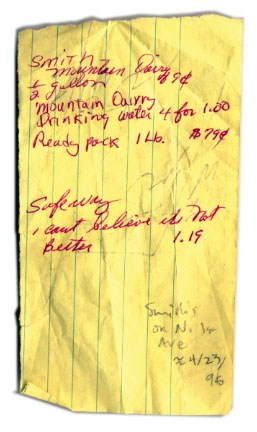 Smith
Mountain Dairy
½ gallon 89¢
Mountain Dairry
Drinking water 4 for 1.00
Ready pack 1 Lb. $79¢
Safeway
i cant Believe its Not
Better 1.19
Smith's
on N. 1st
Ave
4/23/
96